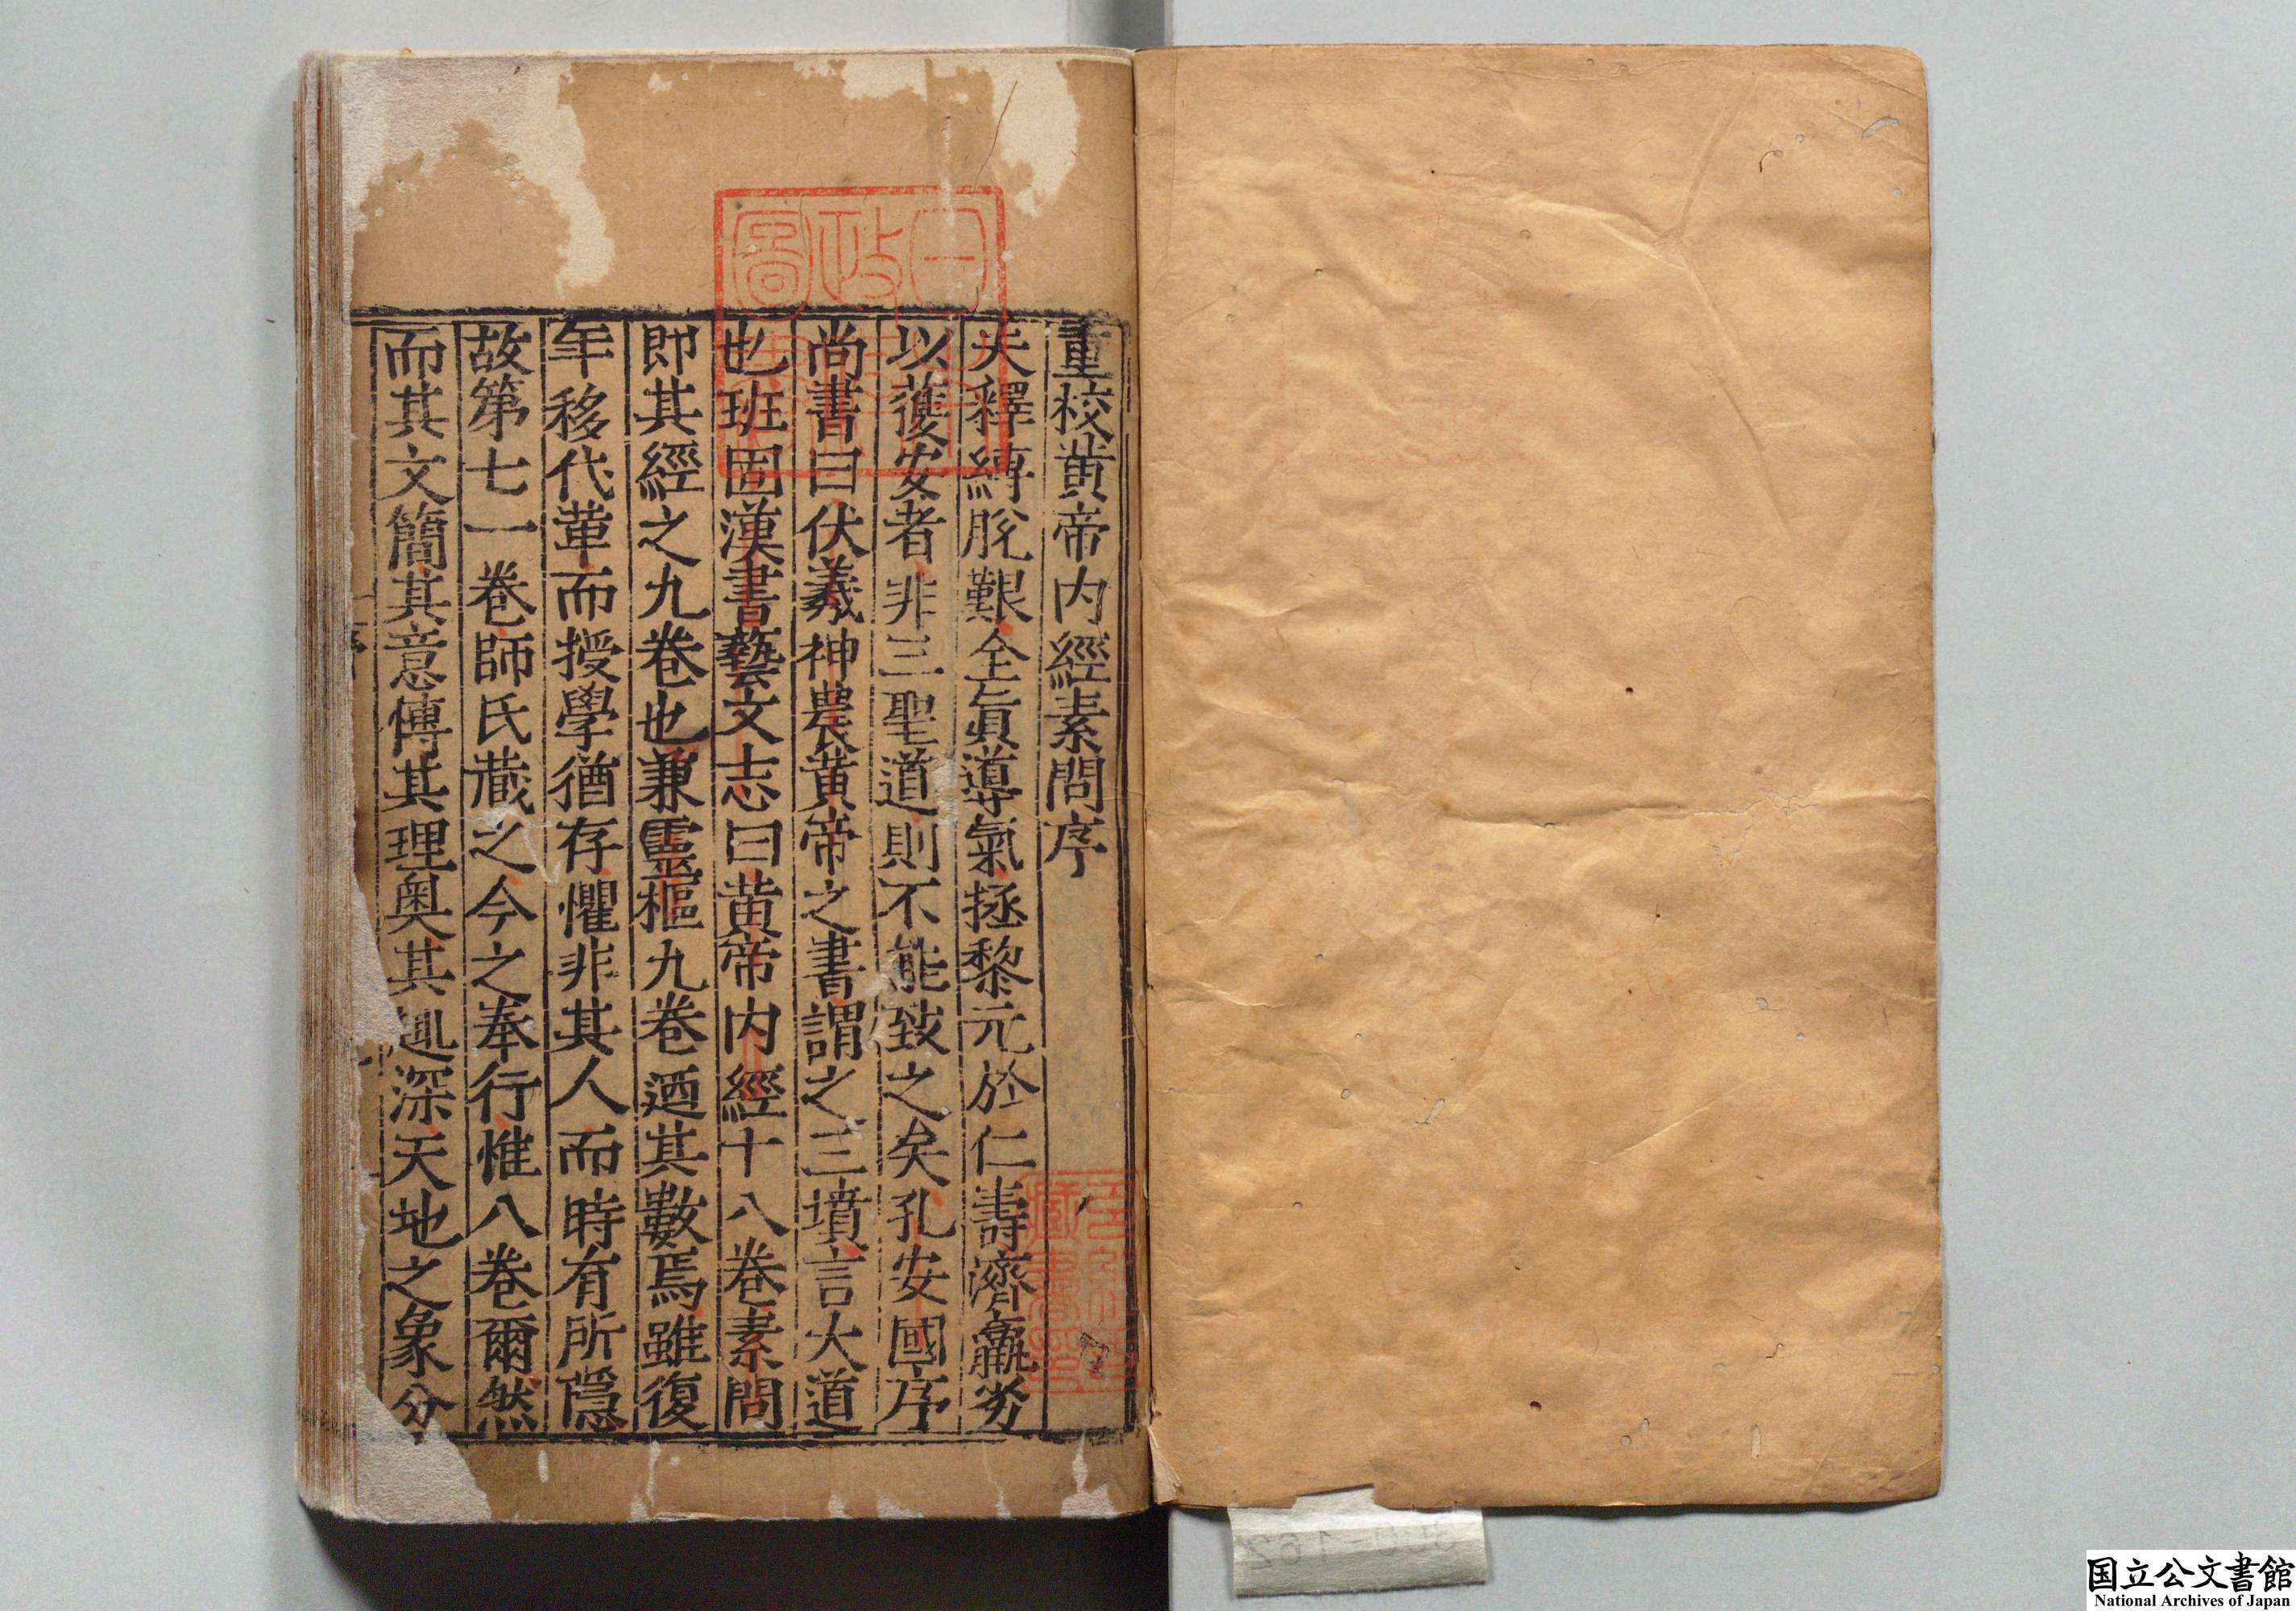 重校黃帝内經素問序
夫釋縛脫艱全眞導氣拯黎元於仁壽濟羸劣
以獲安者非三聖道則不能致之矣孔安國序
尚書曰伏羲神農黃帝之書謂之三墳言大道
也班固漢書藝文志曰黃帝内經十八卷素問
即其經之九卷也兼靈樞九卷迺其數焉雖復
年移代革而授學猶存懼非其人而時有所隱
故第七一卷師氏藏之今之奉行惟八卷爾然
而其文簡其意博其理奥其趣深天地之象分
国立公文書館
National Archives of Japan